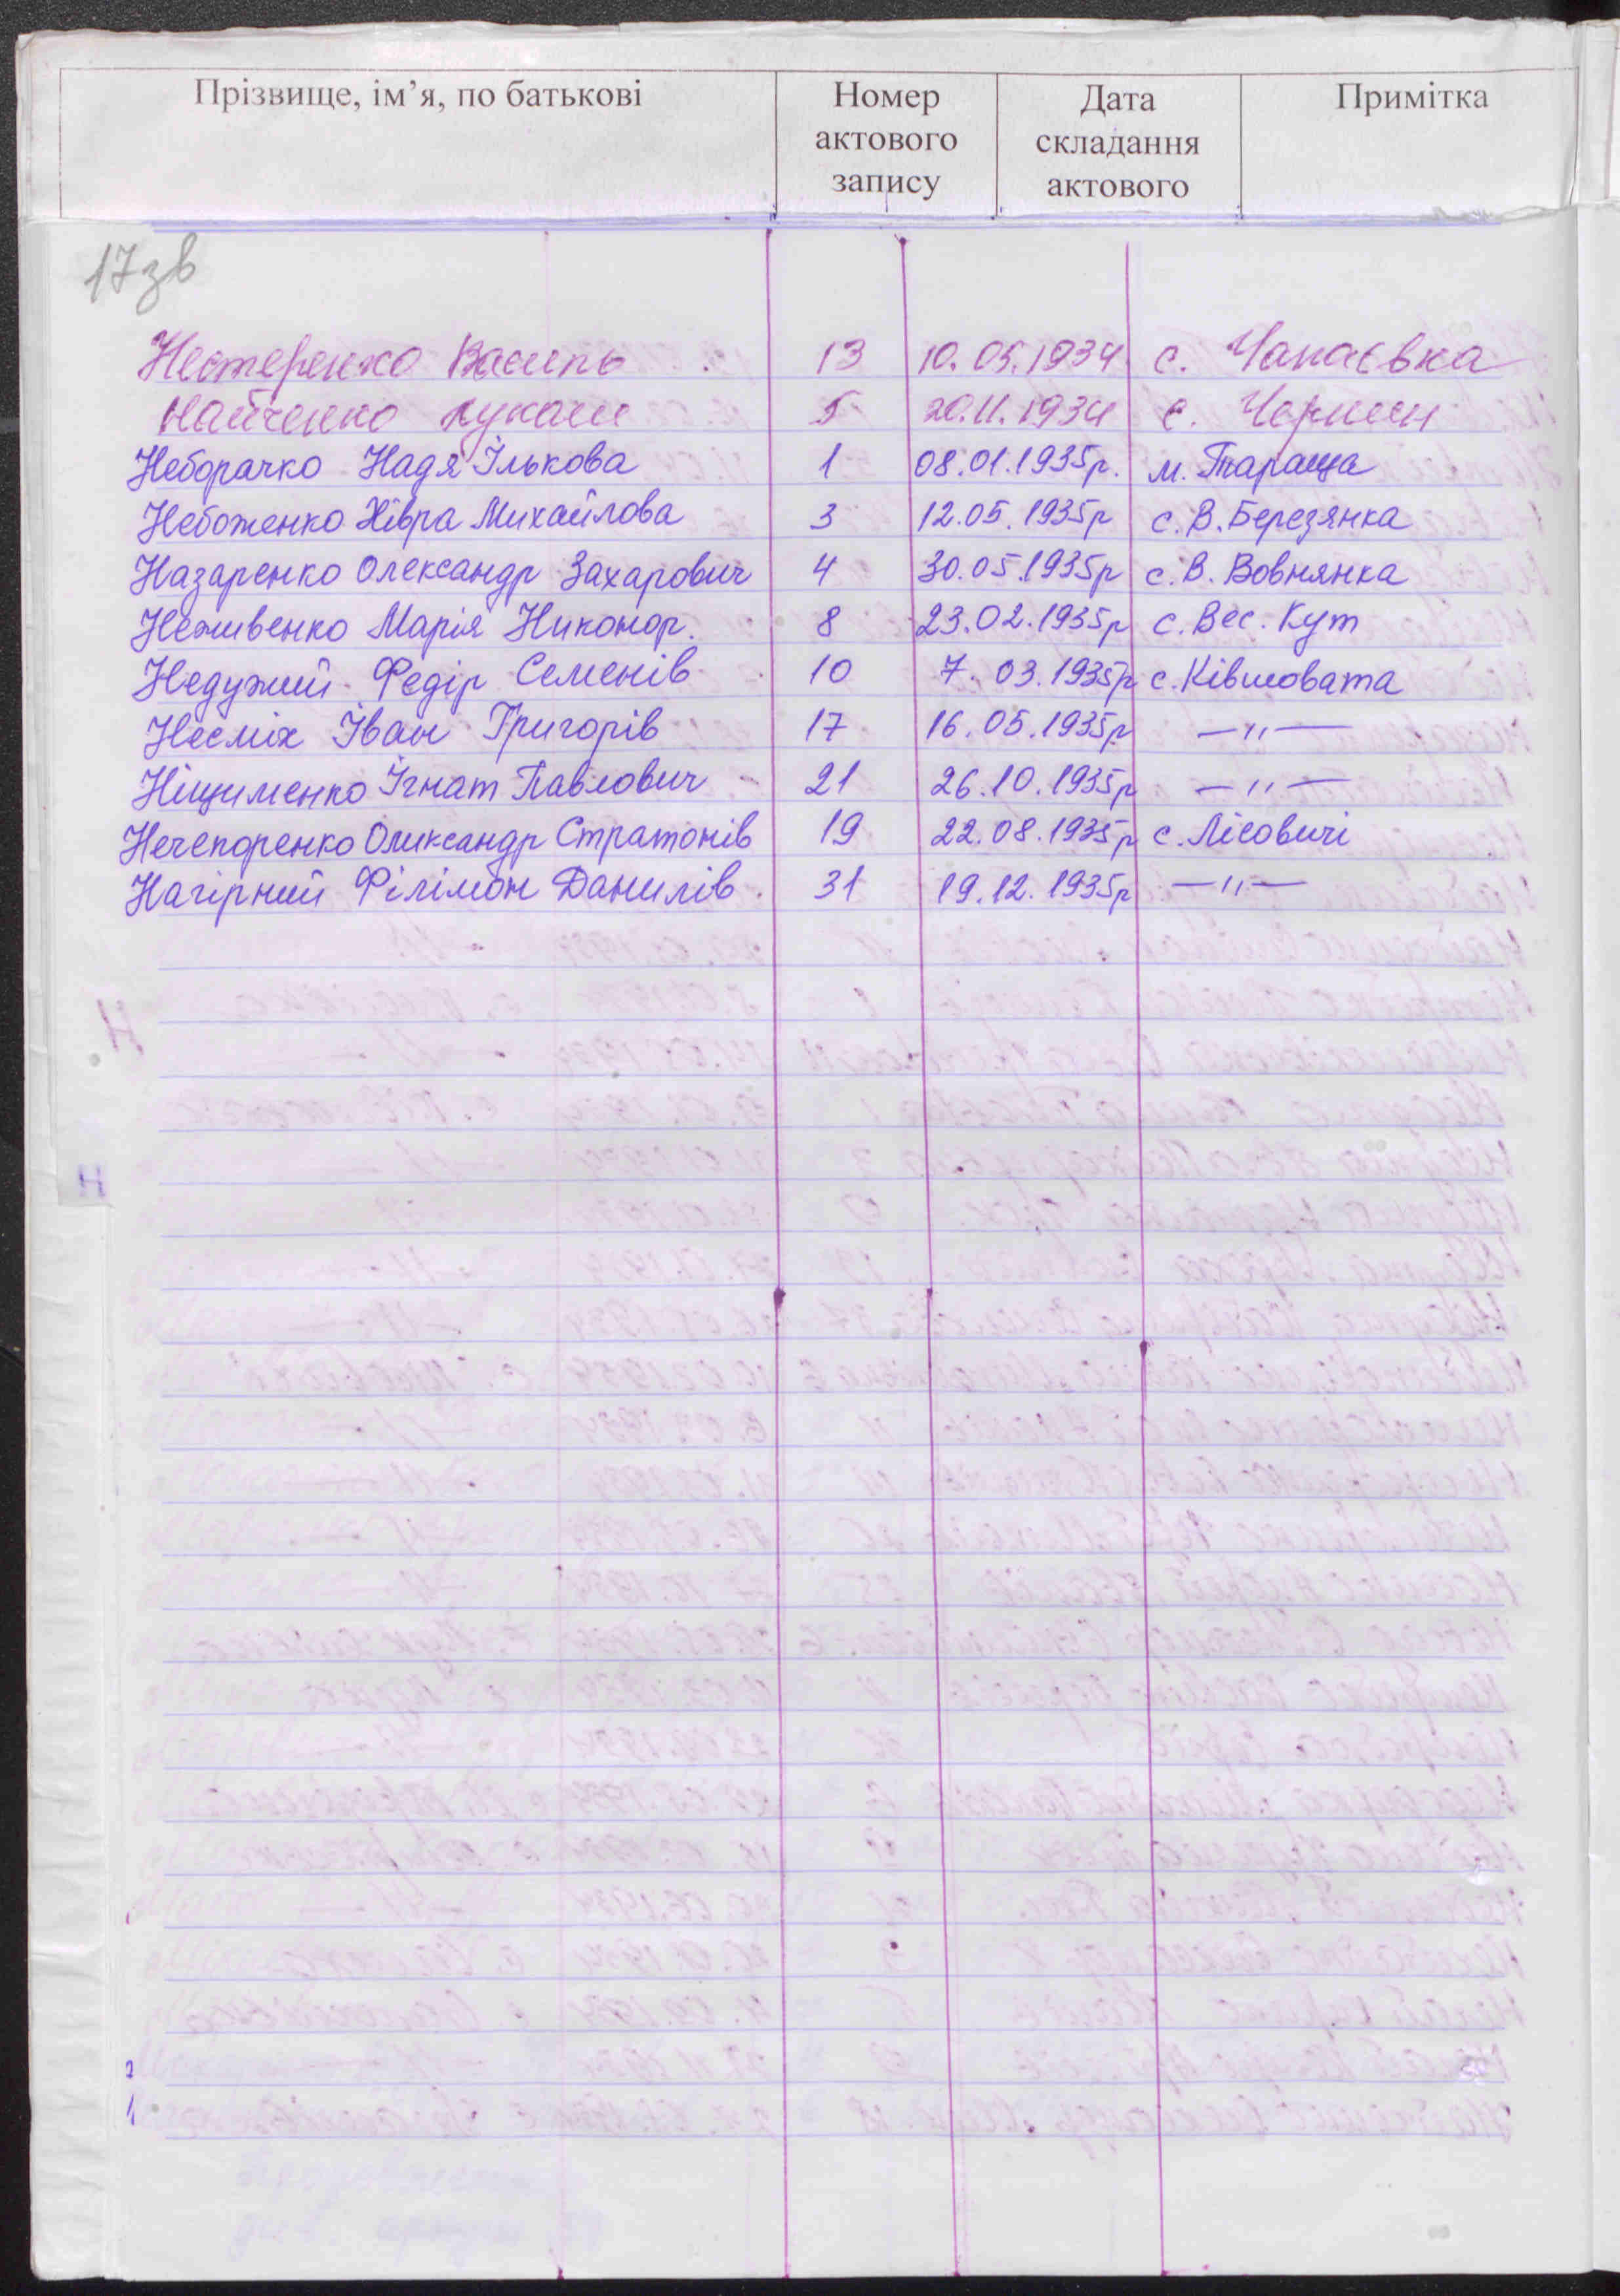 Прізвище, ім’я, по батькові Номер актового запису Дата складання актового Примітка
17зв
Нестеренко Василь 13 10.05.1934 с. Чапаєвка
Найченко Лукаш 5 20.11.1934 с. Чернин
Неборачко Надя Ількова 1 08.01.1935р. м. Тараща
Небоженко Хівра Михайлова 3 12.05.1935р с. В. Березянка
Назаренко Олександр Захарович 4 30.05.1935р с. В. Вовнянка
Неживенко Марія Никонор. 8 23.02.1935р с. Вес. Кут
Недужий Федір Семенів 10 7.03.1935р с. Ківшовата
Несміх Іван Григорів 17 16.05.1935р —〃—
Ніщименко Ігнат Павлович 21 26.10.1935р —〃—
Нечепоренко Олександр Стратонів 19 22.08.1935р с. Лісовичі
Нагірний Філімон Данилів 31 19.12.1935р —〃—
Н